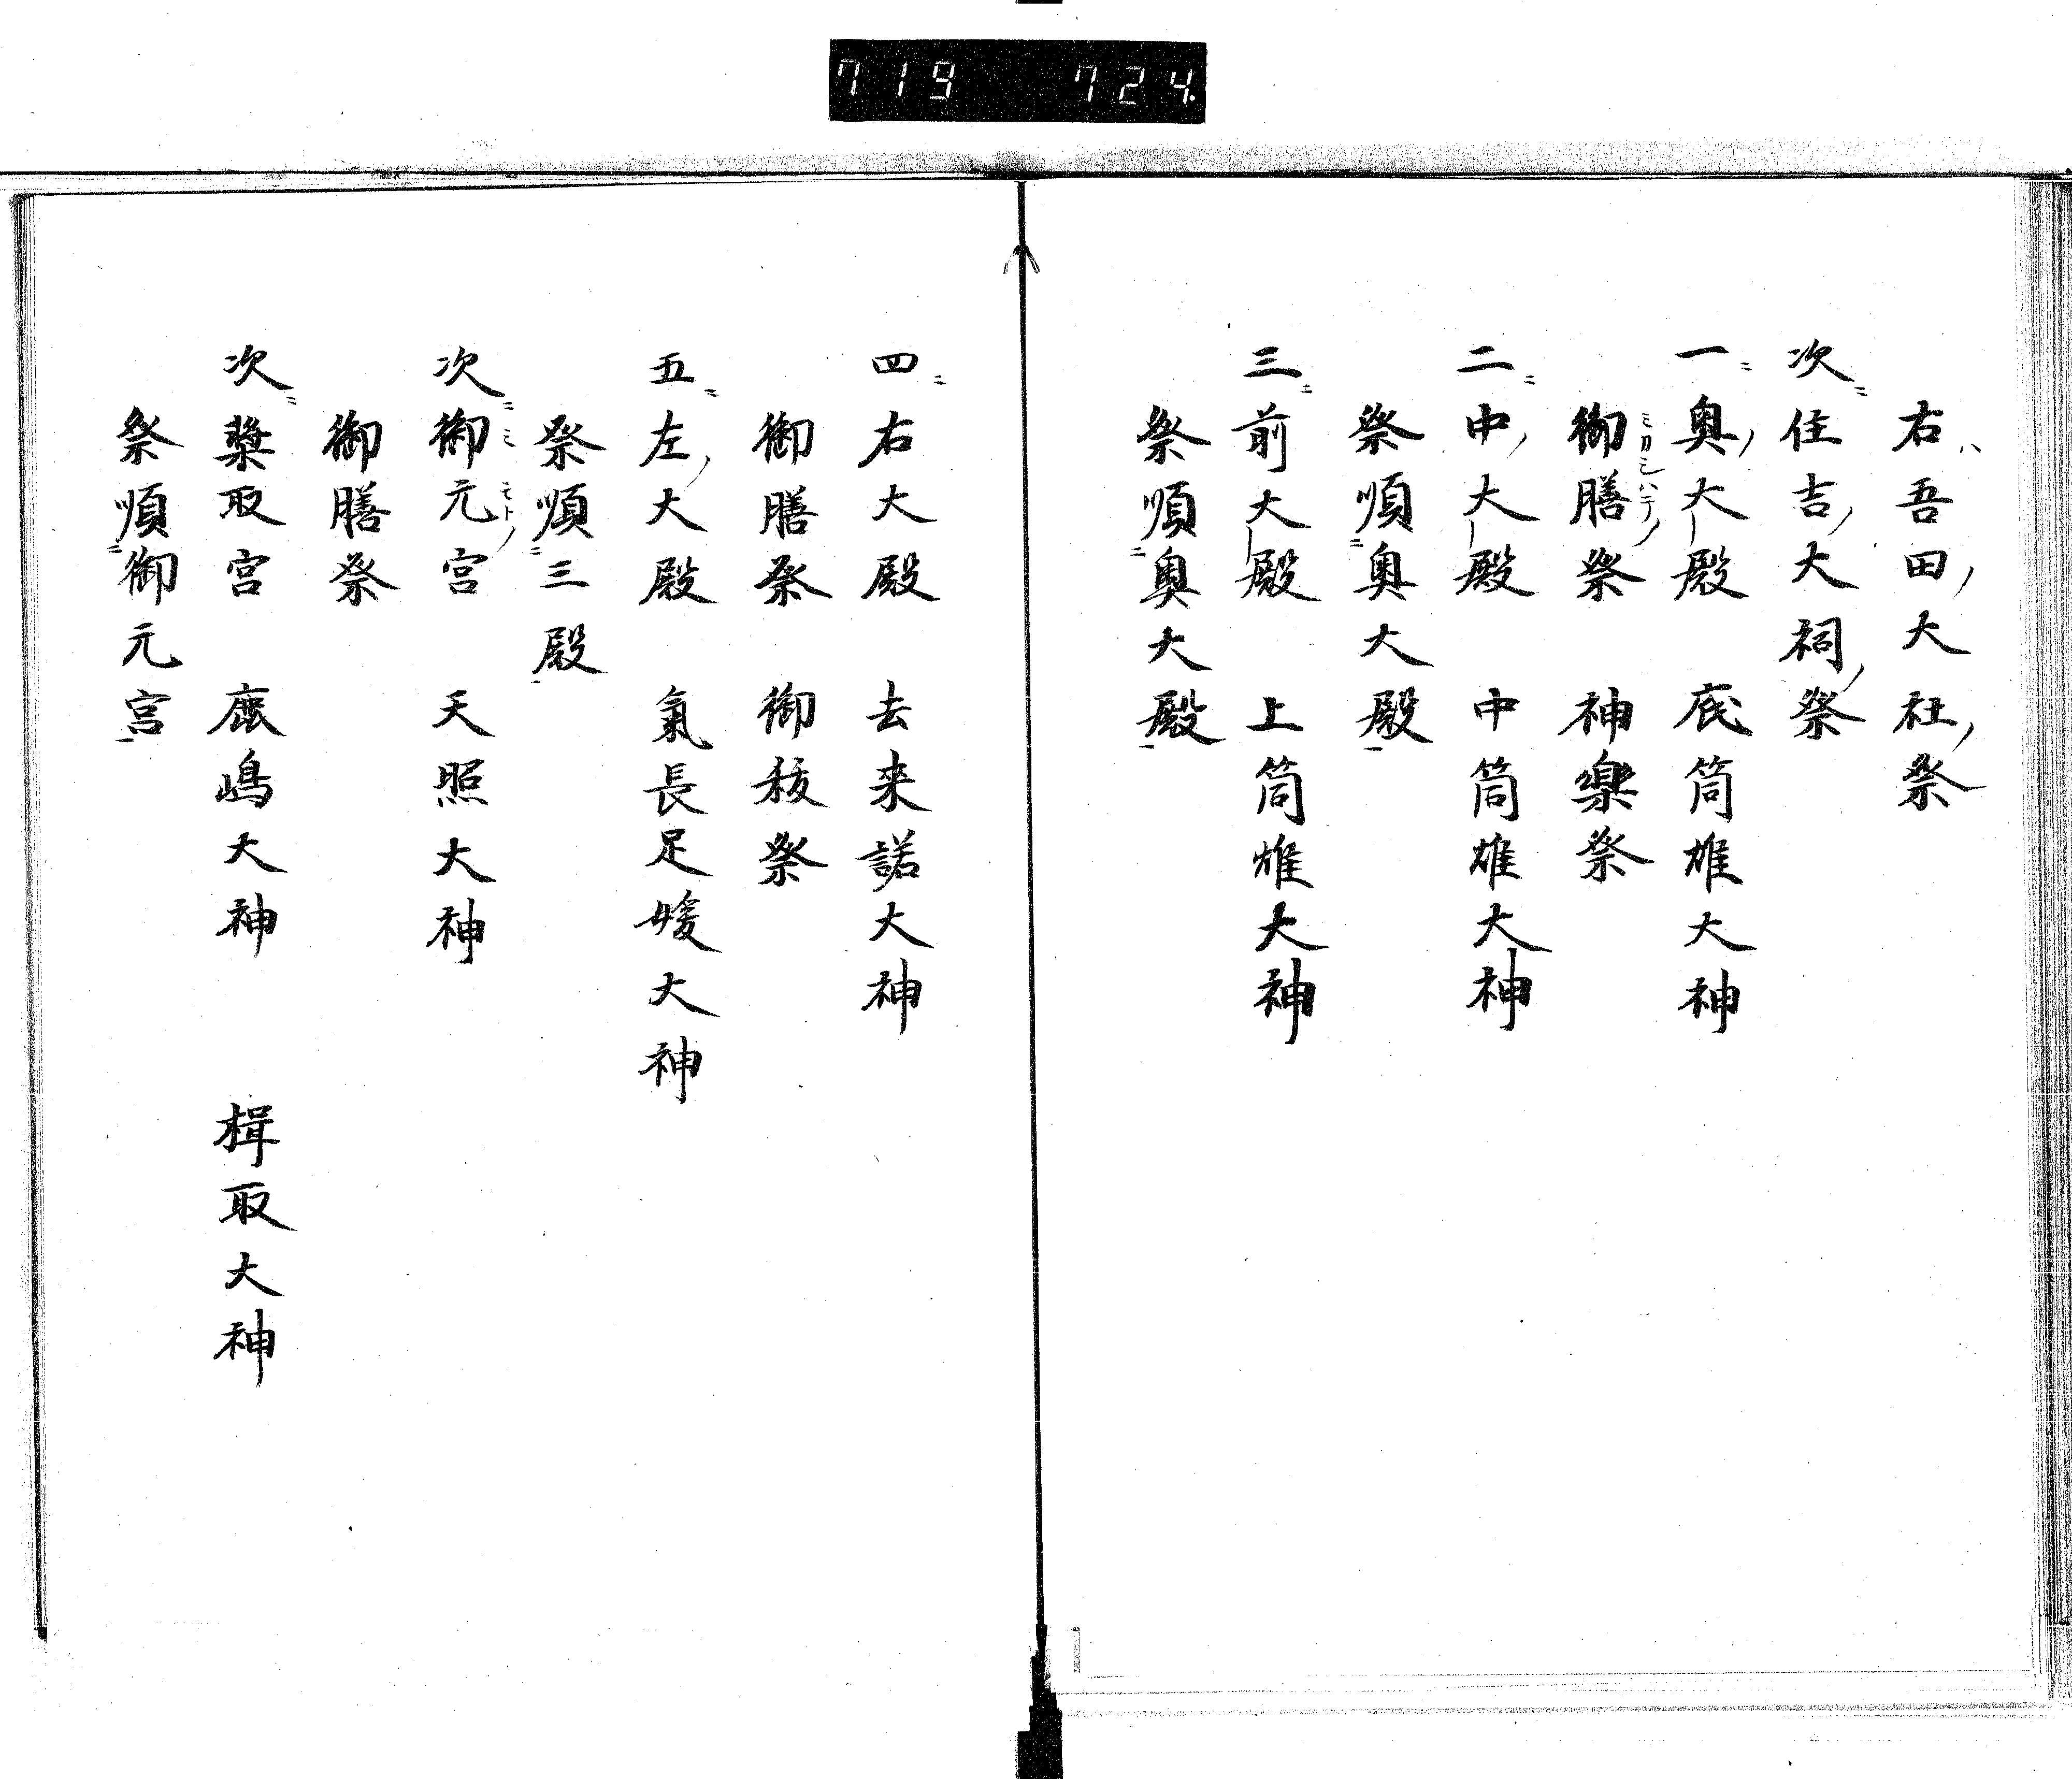 719 724
右ハ吾田ノ大社ノ祭
次ニ住吉ノ大祠ノ祭
一ニ奥ノ大殿 底筒雄大神
御膳祭 神樂祭
二ニ中ノ大殿 中筒雄大神
祭順ニ奥大殿
三ニ前大殿 上筒雄大神
祭順ニ奥大殿
四ニ右大殿 去来諾大神
御膳祭 御祓祭
五ニ左ノ大殿 氣長足媛大神
祭順ニ三殿
次ニ御ミ元モトノ宮 天照大神
御膳祭
次ニ檝取宮 鹿嶋大神 楫取大神
祭順ニ御元宮